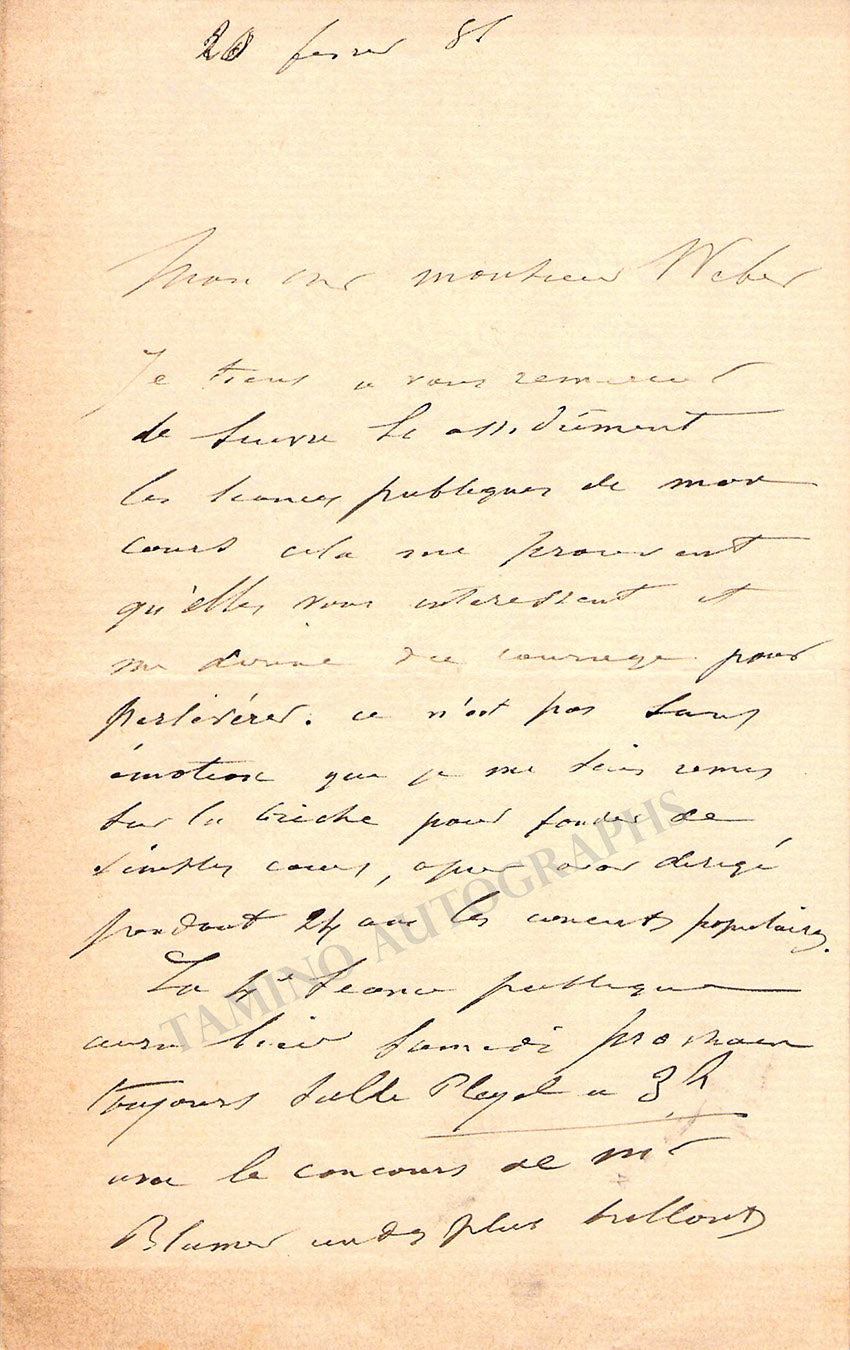 20 fevrier 85
Mon cher monsieur Weber
Je tiens a vous remercier
de suivre si assidûment
les seances publiques de mon
cours cela me prouvent
qu'elles vous interessent et
me donne du courage pour
persévérer. ce n'est pas sans
émotion que je me suis remis
sur la brèche pour fonder de
simples cours, apres avoir dirigé
pendant 24 ans les concerts populaires.
La 4e seance publique
aura lieu samedi prochain
toujours salle Pleyel a 3h
avec le concours de Mr
Blumer un des plus brillants
TAMINO AUTOGRAPHS